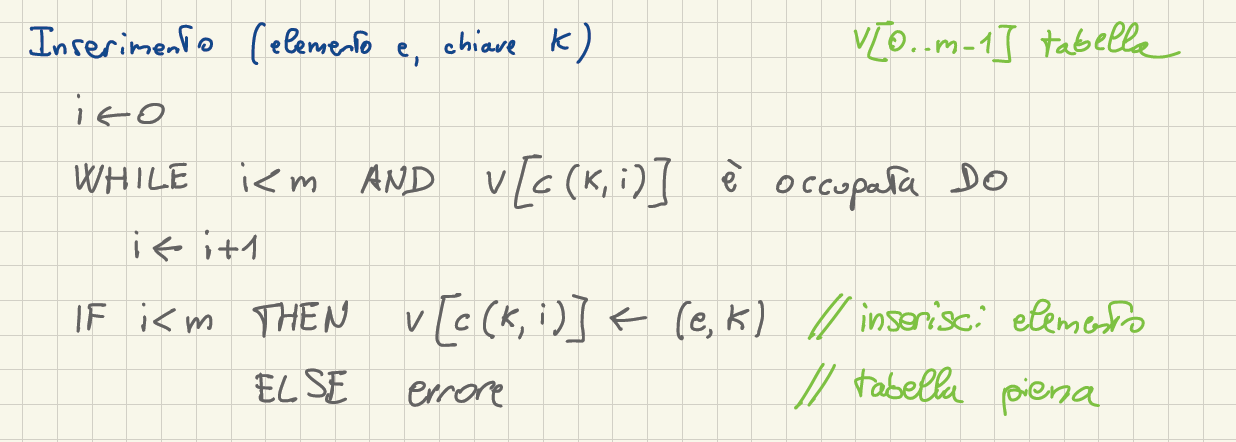 Inserimento (elemento e, chiave K) V[0..m-1] tabella
i ← 0
WHILE i<m AND V[c(K,i)] è occupata DO
i ← i+1
IF i<m THEN V[c(K,i)] ← (e,K) // inserisci elemento
ELSE errore // tabella piena